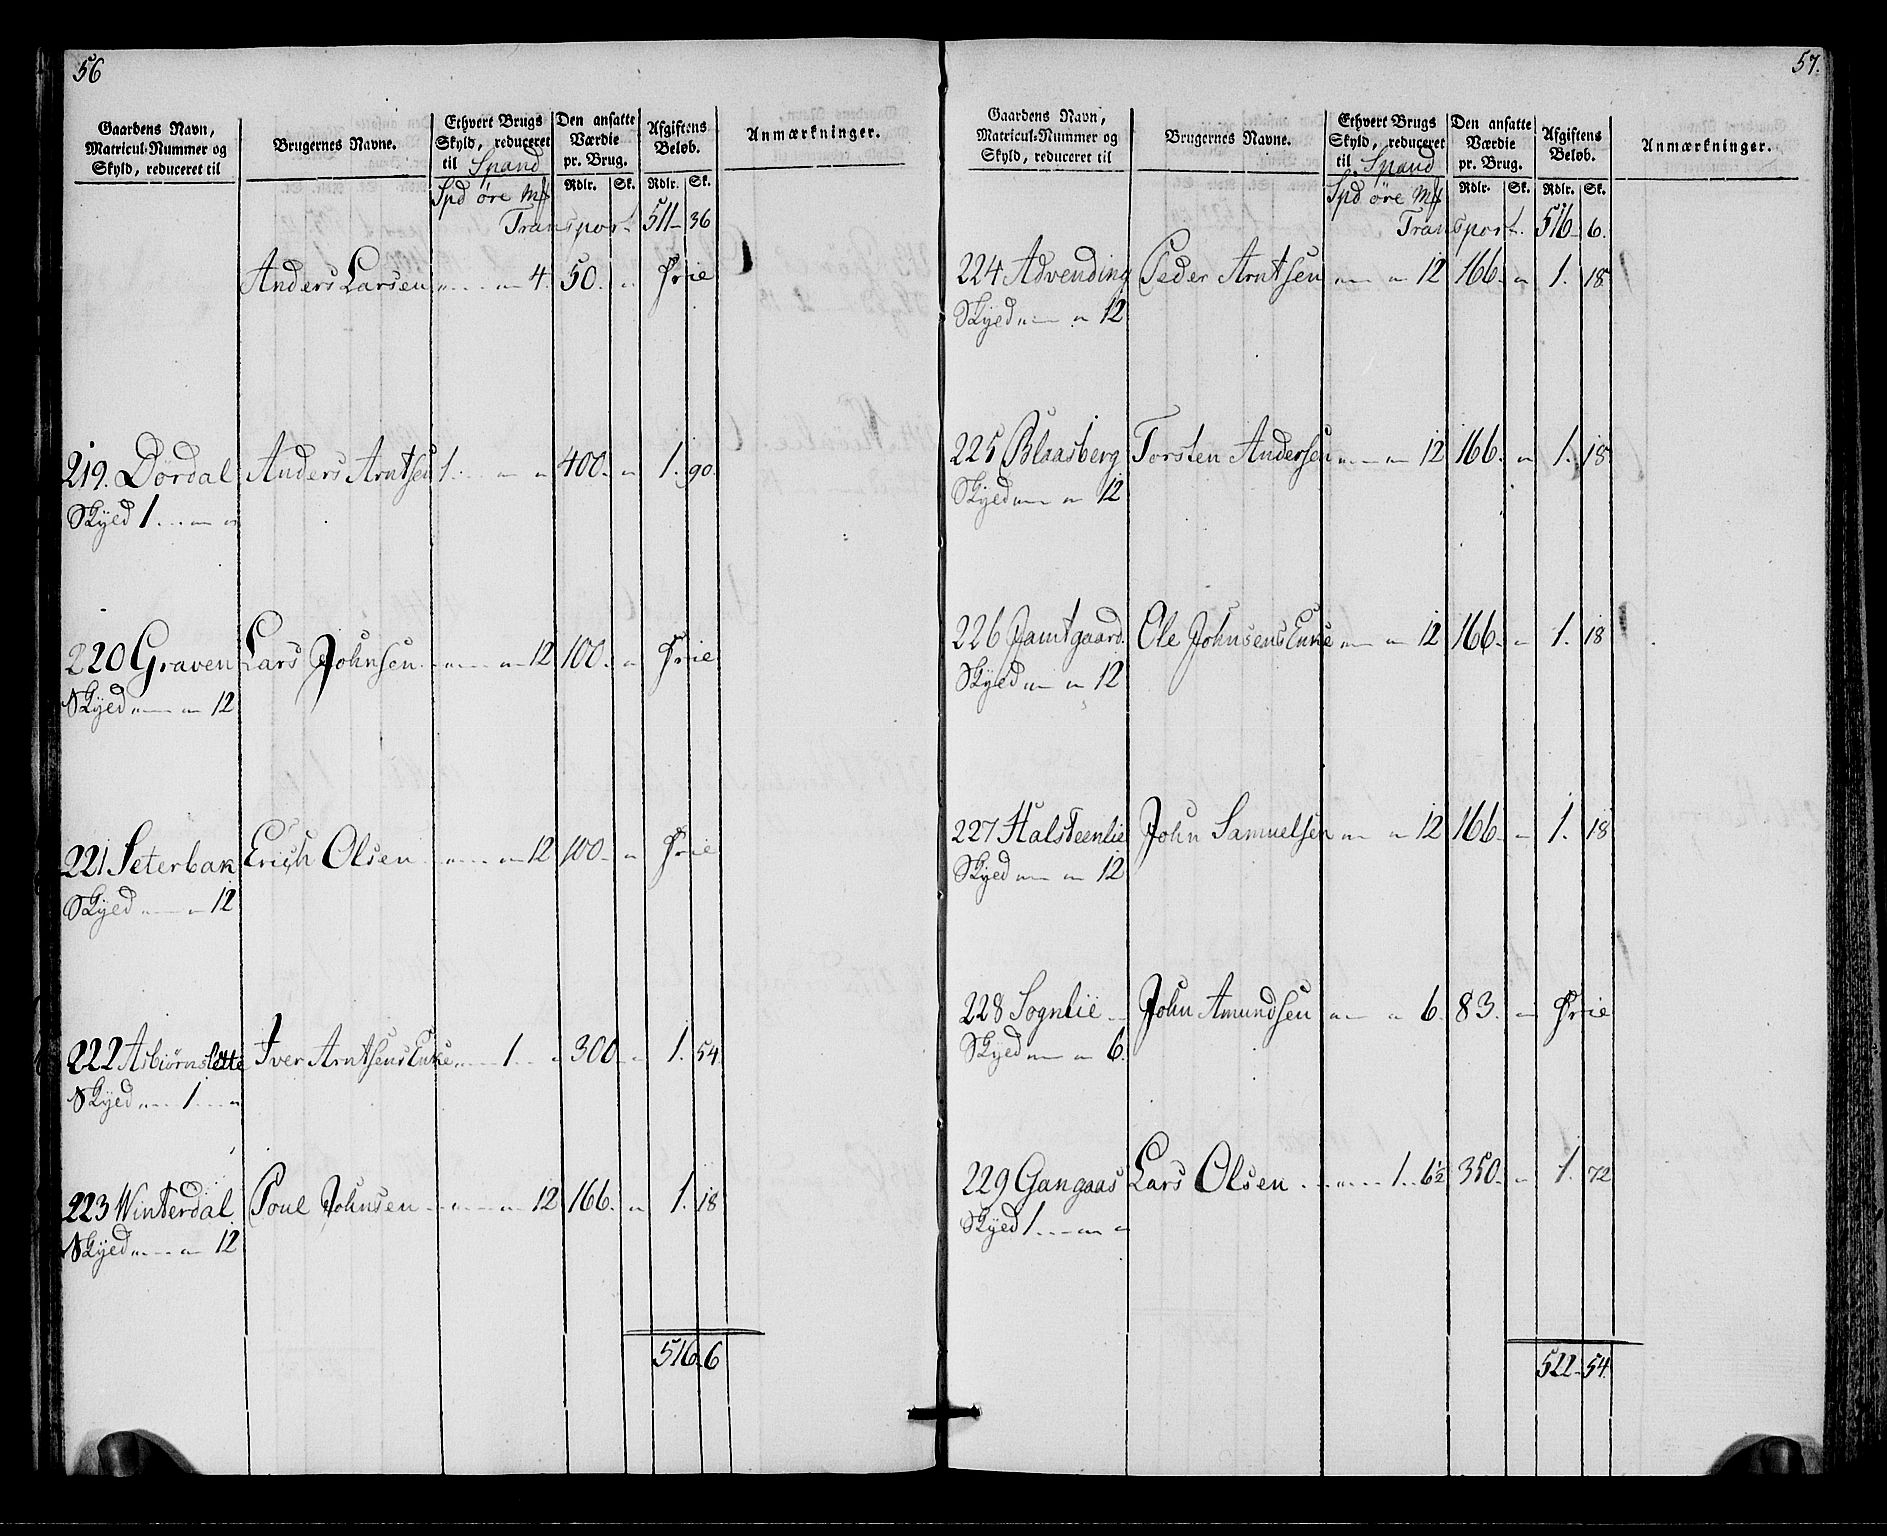 56
Gaardens Navn, Matricul-Nummer og Skyld, reduceret til | Brugernes Navne. | Ethvert Brugs Skyld, reduceret til Spand | Den ansatte Værdie pr. Brug. | Afgiftens Beløb. | Anmærkninger.
Spd øre Mk | Rdlr. Sk. | Rdlr. Sk.
Transport 511 - 36
Anders Larsen " " 4. 50. " Frie
219. Dørdal Anders Arntsen 1. " " 400. " 1. 90.
Skyed 1. " "
220 Graven Lars Johnsen " " 12 100. " Frie
Skyed " " 12
221 Seterbak Erich Olsen " " 12 100. " Frie
Skyed " " 12
222 Asbiørnslette Iver Arntsens Enke " 1. " 300. " 1. 54.
Skyed " 1. "
223 Winterdal Poul Johnsen " " 12 166. " 1. 18
Skyed " " 12
516. 6
57.
Gaardens Navn, Matricul-Nummer og Skyld, reduceret til | Brugernes Navne. | Ethvert Brugs Skyld, reduceret til Spand | Den ansatte Værdie pr. Brug. | Afgiftens Beløb. | Anmærkninger.
Spd øre Mk | Rdlr. Sk. | Rdlr. Sk.
Transport. 516 - 6.
224 Advending Peder Arntsen " " 12 166. " 1. 18
Skyed " " 12
225 Blaasberg Torsten Andersen " " 12 166. " 1. 18
Skyed " " 12
226 Jamtgaard. Ole Johnsens Enke " " 12 166. " 1. 18
Skyed " " 12
227 Halsteenlie John Samuelsen " " 12 166. " 1. 18
Skyed " " 12
228 Sognlie John Amundsen " " 6. 83. " Frie
Skyed " " 6.
229 Gangaas Lars Olsen " 1. 6½ 350. " 1. 72
Skyed 1. " "
522 - 54.